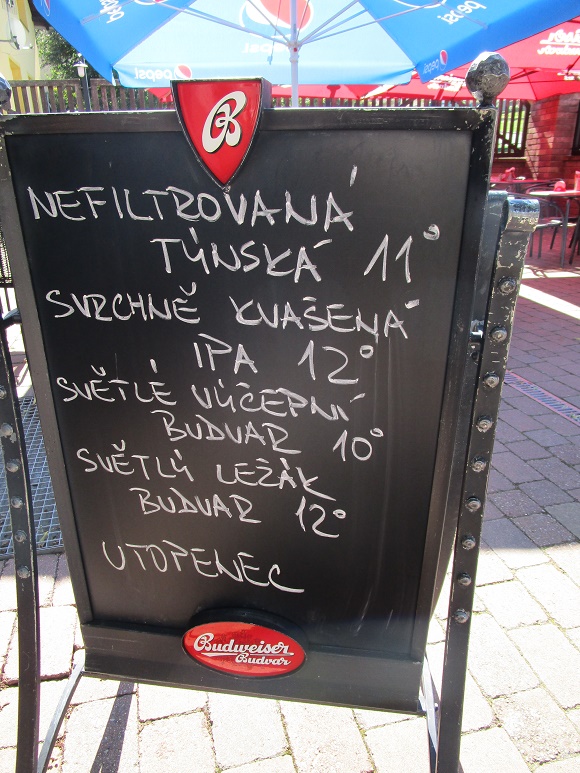 pepsi
pepsi
pepsi
B
NEFILTROVANÁ
TÝNSKÁ 11°
SVRCHNĚ KVAŠENÁ
IPA 12°
SVĚTLÉ VÝČEPNÍ
BUDVAR 10°
SVĚTLÝ LEŽÁK
BUDVAR 12°
UTOPENEC
Budweiser
Budvar